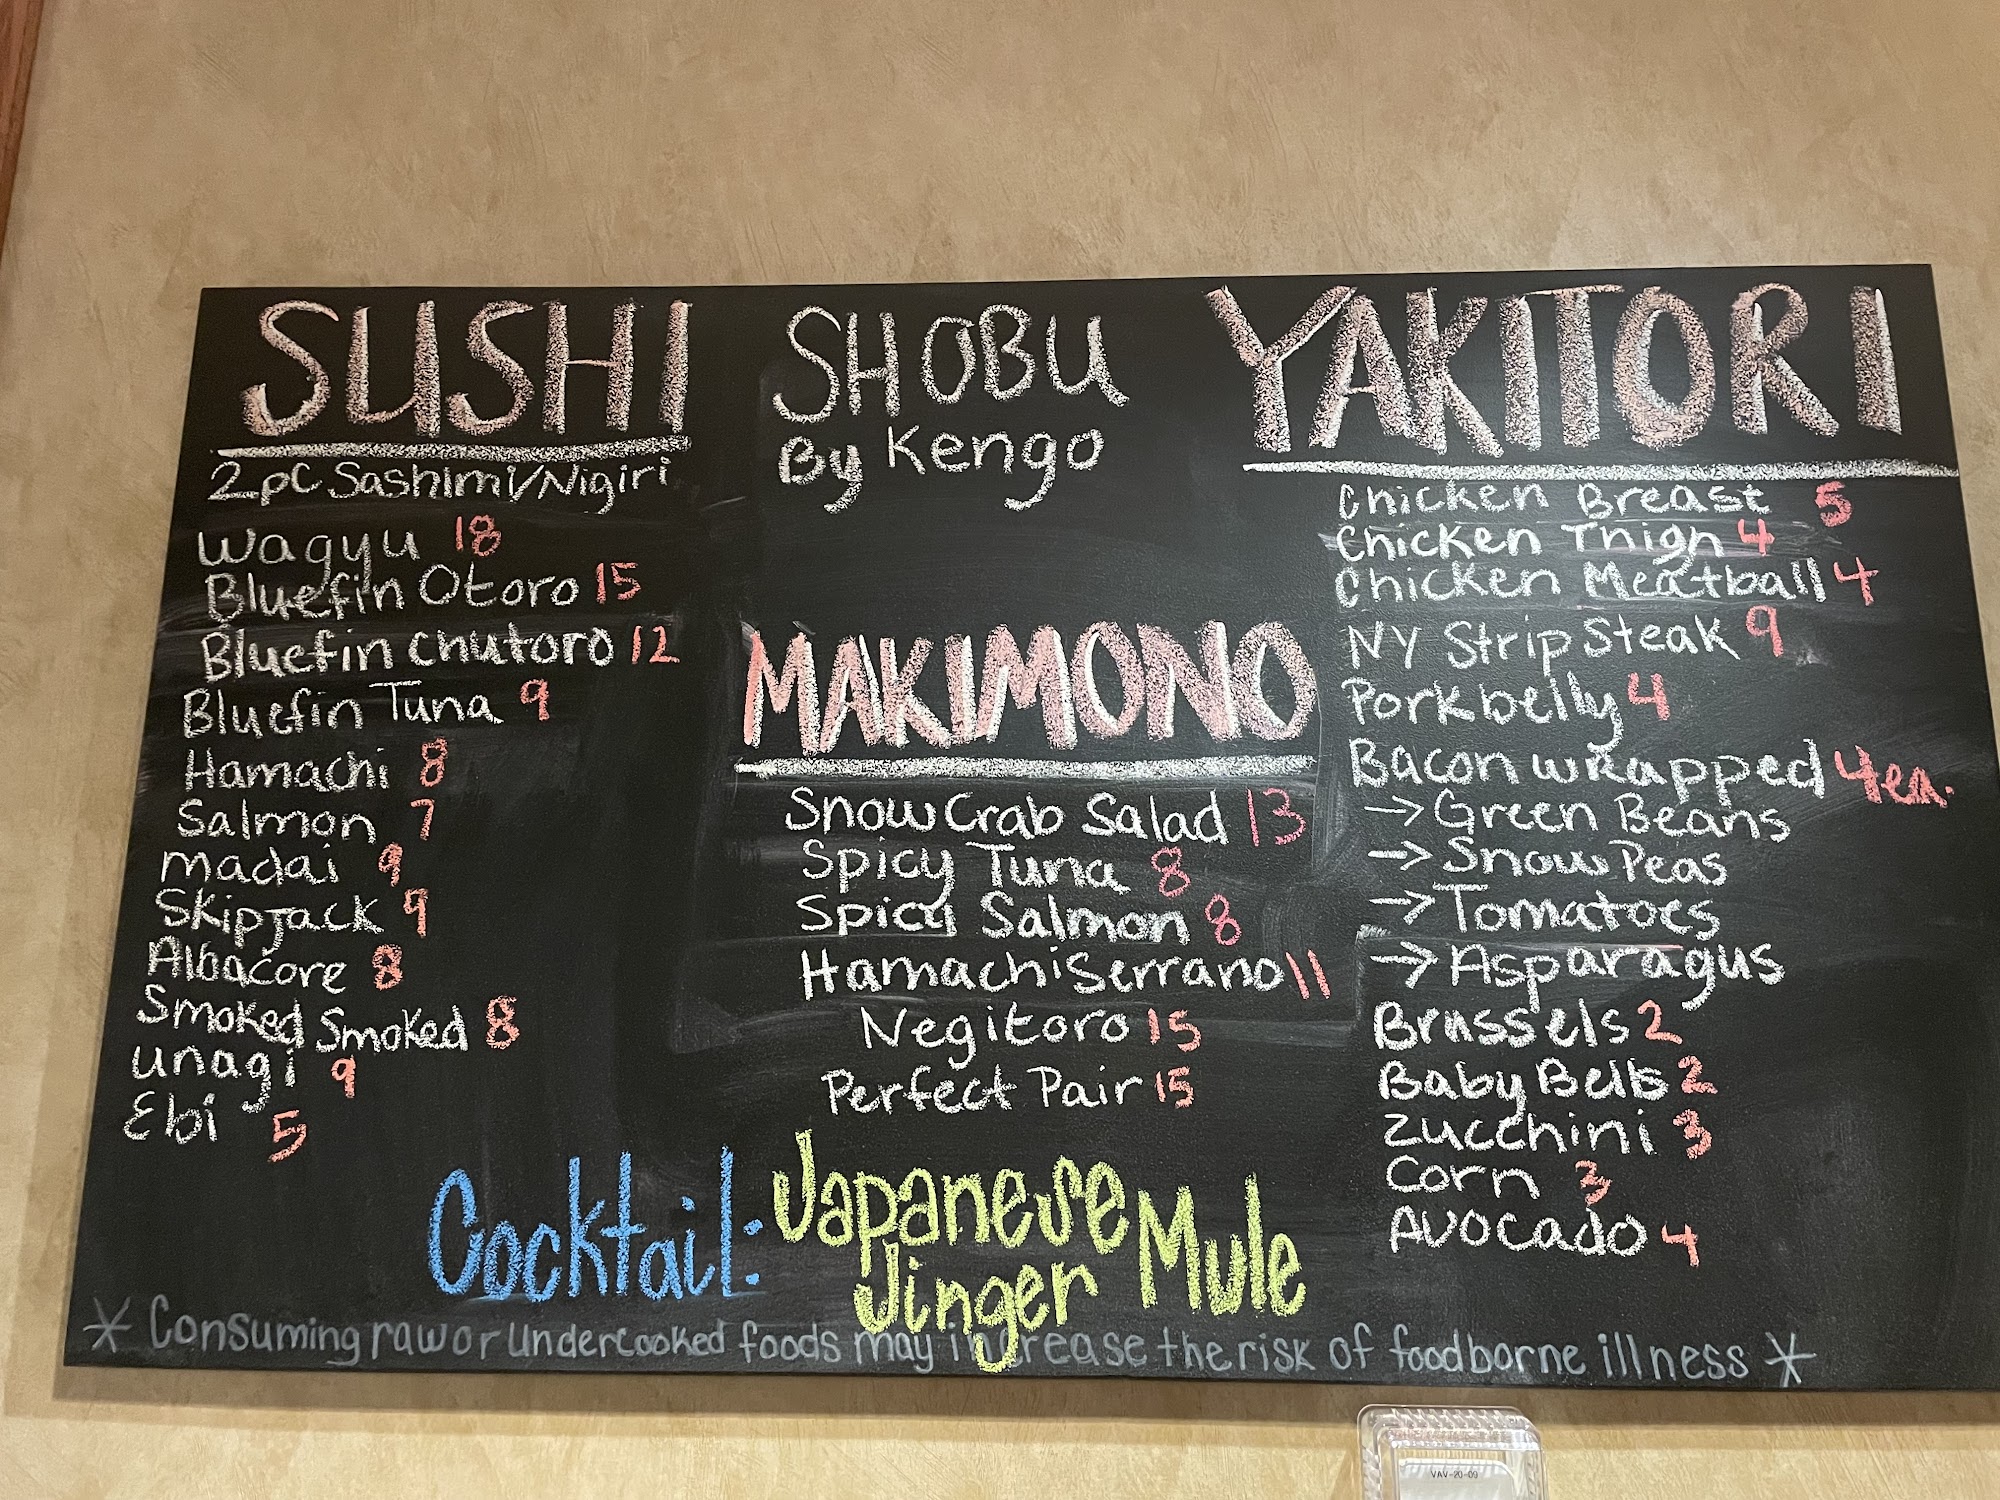 SUSHI
2pc Sashimi/Nigiri
Wagyu 18
Bluefin Otoro 15
Bluefin Chutoro 12
Bluefin Tuna 9
Hamachi 8
Salmon 7
madai 9
Skipjack 9
Albacore 8
Smoked Smoked 8
unagi 9
Ebi 5
SHOBU
By Kengo
MAKIMONO
Snow Crab Salad 13
Spicy Tuna 8
Spicy Salmon 8
Hamachi Serrano 11
Negitoro 15
Perfect Pair 15
YAKITORI
Chicken Breast 5
Chicken Thigh 4
Chicken Meatball 4
NY Strip Steak 9
Porkbelly 4
Bacon wrapped 4ea.
→ Green Beans
→ Snow Peas
→ Tomatoes
→ Asparagus
Brussels 2
Baby Bells 2
Zucchini 3
Corn 3
Avocado 4
Cocktail: Japanese
Jinger Mule
* Consuming raw or undercooked foods may increase the risk of foodborne illness *
VAV-20-09